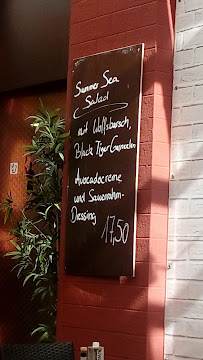 Summer Sea
Salad
mit Wolfsbarsch,
Black Tiger Garnelen
Avocadocreme
und Sauerrahm-
Dressing
17,50